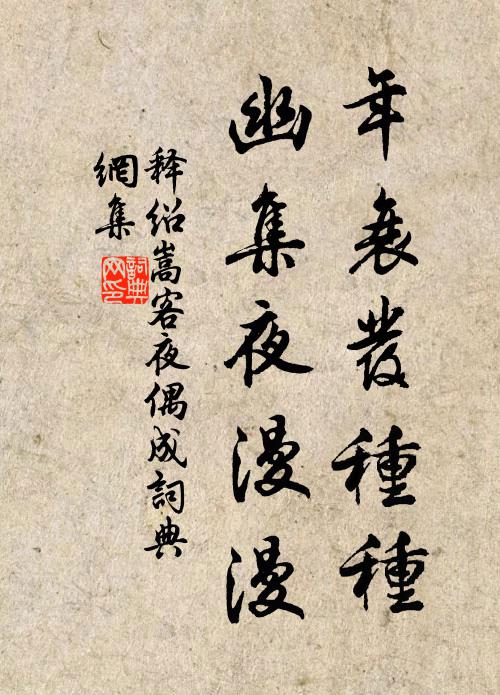 年衰發種種
幽集夜漫漫
释绍嵩客夜偶成詞典
網集
詞典
网印